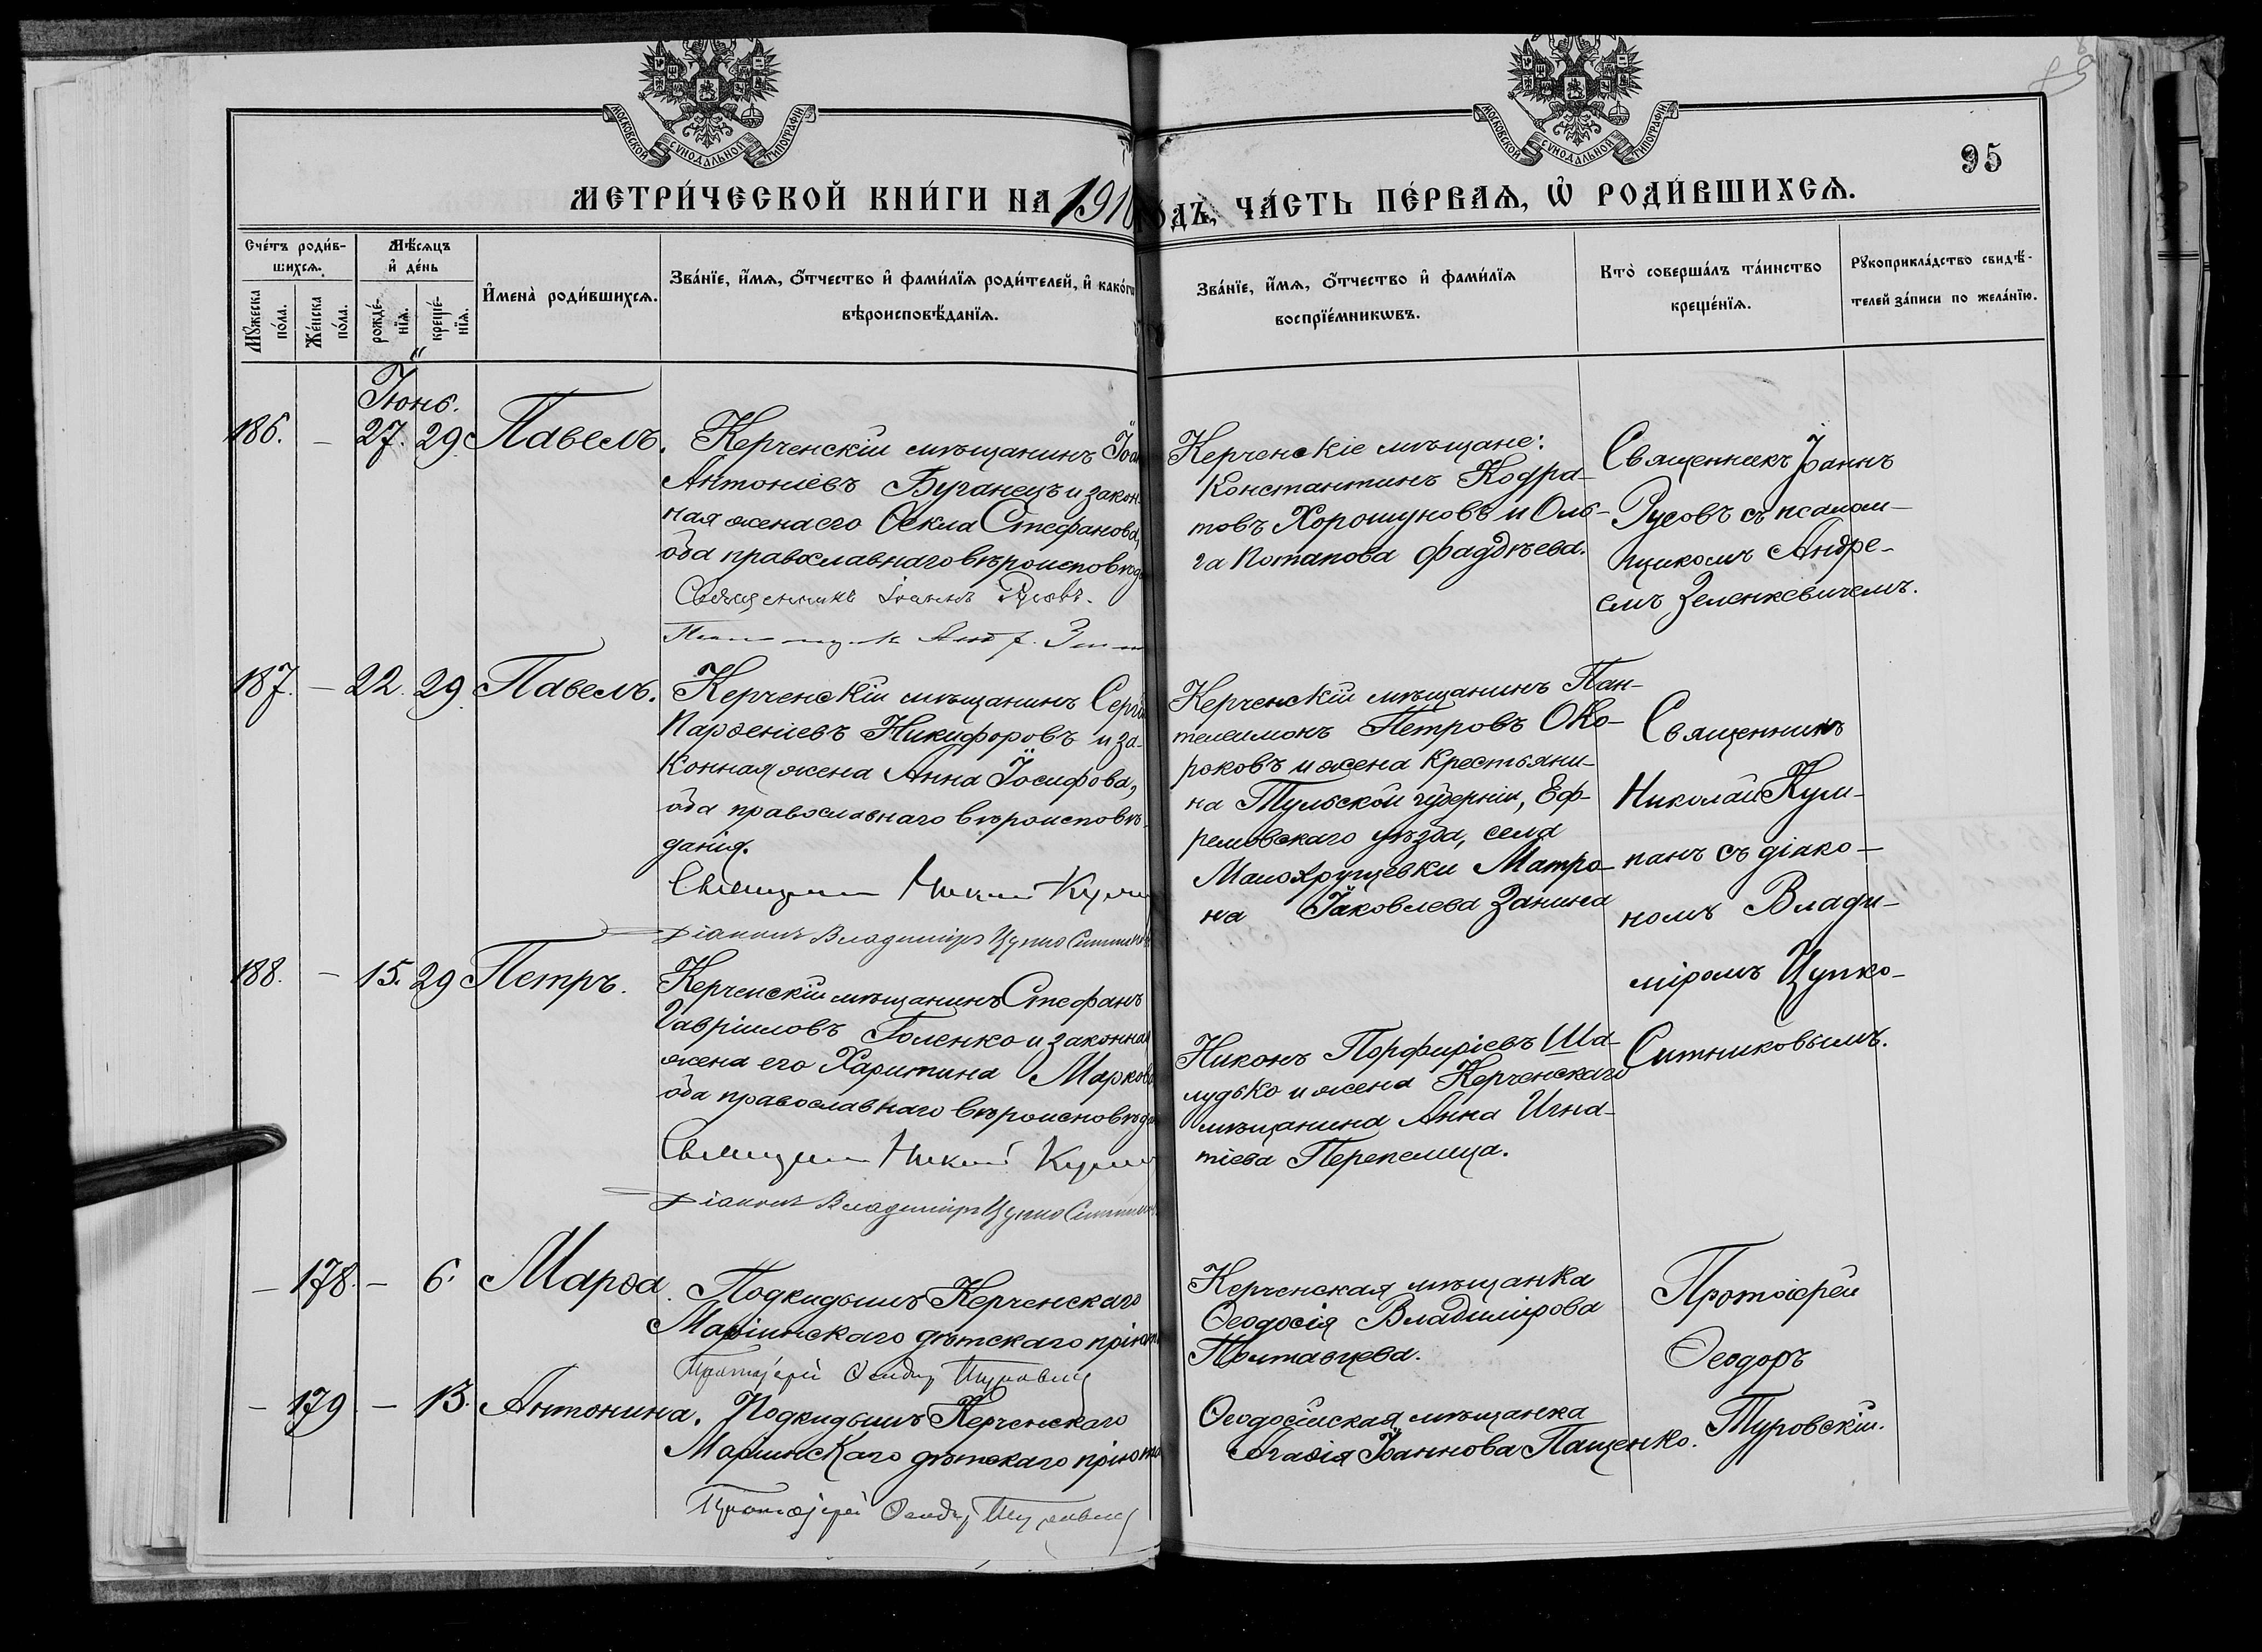 МОСКОВСКОЙ СѴНОДАЛЬНОЙ ТИПОГРАФІИ
МОСКОВСКОЙ СѴНОДАЛЬНОЙ ТИПОГРАФІИ
95
МЕТРИ́ЧЕСКОЙ КНИ́ГИ НА 1910
ОДЪ, ЧА́СТЬ ПЕ́РВАѦ, Ѡ РОДИ́ВШИХСѦ.
Сче́тъ роди́в-
шихсѧ.
Мꙋжеска по́ла.
Же́нска по́ла.
Мѣ́сѧцъ
и҆ де́нь
рожде́-
нїѧ.
креще́-
нїѧ.
И҆мена̀ роди́вшихсѧ.
Зва́нїе, и҆́мѧ, ѻ҆́тчество и҆ фами́лїѧ роди́телей, и҆ како́гѡ
вѣроисповѣ́данїѧ.
Зва́нїе, и҆́мѧ, ѻ҆́тчество и҆ фами́лїѧ
воспрїе́мникѡвъ.
Кто̀ соверша́лъ та́инство
креще́нїѧ.
Рꙋкоприкла́дство свидѣ́-
телей за́писи по жела́нїю.
Іюнь.
186. – 27. 29 Павелъ.
Керченскій мѣщанинъ Іоа
Антоніевъ Буганецъ и закон-
ная жена его Ѳекла Стефанова,
оба православнаго вѣроисповѣд
Священникъ Іоаннъ Русовъ.
Керченскіе мѣщане:
Константинъ Кодра-
товъ Хорошуновъ и Оль-
га Потапова Фаддѣева.
Священникъ Іоаннъ
Русовъ съ псалом-
щикомъ Андре-
емъ Зеленкевичемъ.
187. – 22. 29. Павелъ.
Керченскій мѣщанинъ Сергѣ
Парѳеніевъ Никифоровъ и за-
конная жена Анна Іосифова,
оба православнаго вѣроисповѣ-
данія.
Священник Николай Кулп
Діаконъ Владиміръ Цупко Ситник
Керченскій мѣщанинъ Пан-
телеимонъ Петровъ Око-
роковъ и жена крестьяни-
на Тульской губерніи, Еф-
ремовскаго уѣзда, села
Малохрущевки Матро-
на Іаковлева Занина
Священникъ
Николай Кул-
панъ съ діако-
номъ Влади-
міромъ Цупко-
Ситниковымъ.
188. – 15. 29 Петръ.
Керченскій мѣщанинъ Стефанъ
Гавріиловъ Голенко и законная
жена его Харитина Маркова
оба православнаго вѣроисповѣда
Священник Николай Кулп
Діаконъ Владиміръ Цупко Ситник
Никонъ Порфиріевъ Ша-
лудько и жена Керченскаго
мѣщанина Анна Игна-
тіева Перепелица.
– 178. – 6. Марѳа.
Подкидышъ Керченскаго
Маріинскаго дѣтскаго пріюта
Протоіерей Ѳеодор Туровскій
Керченская мѣщанка
Ѳеодосія Владимірова
Полтавцева.
Протоіерей
Ѳеодоръ
Туровскій.
– 179 – 13. Антонина.
Подкидышъ Керченскаго
Маріинскаго дѣтскаго пріюта
Протоіерей Ѳеодор Туровскій
Ѳеодосійская мѣщанка
Агаѳія Іоаннова Пащенко.